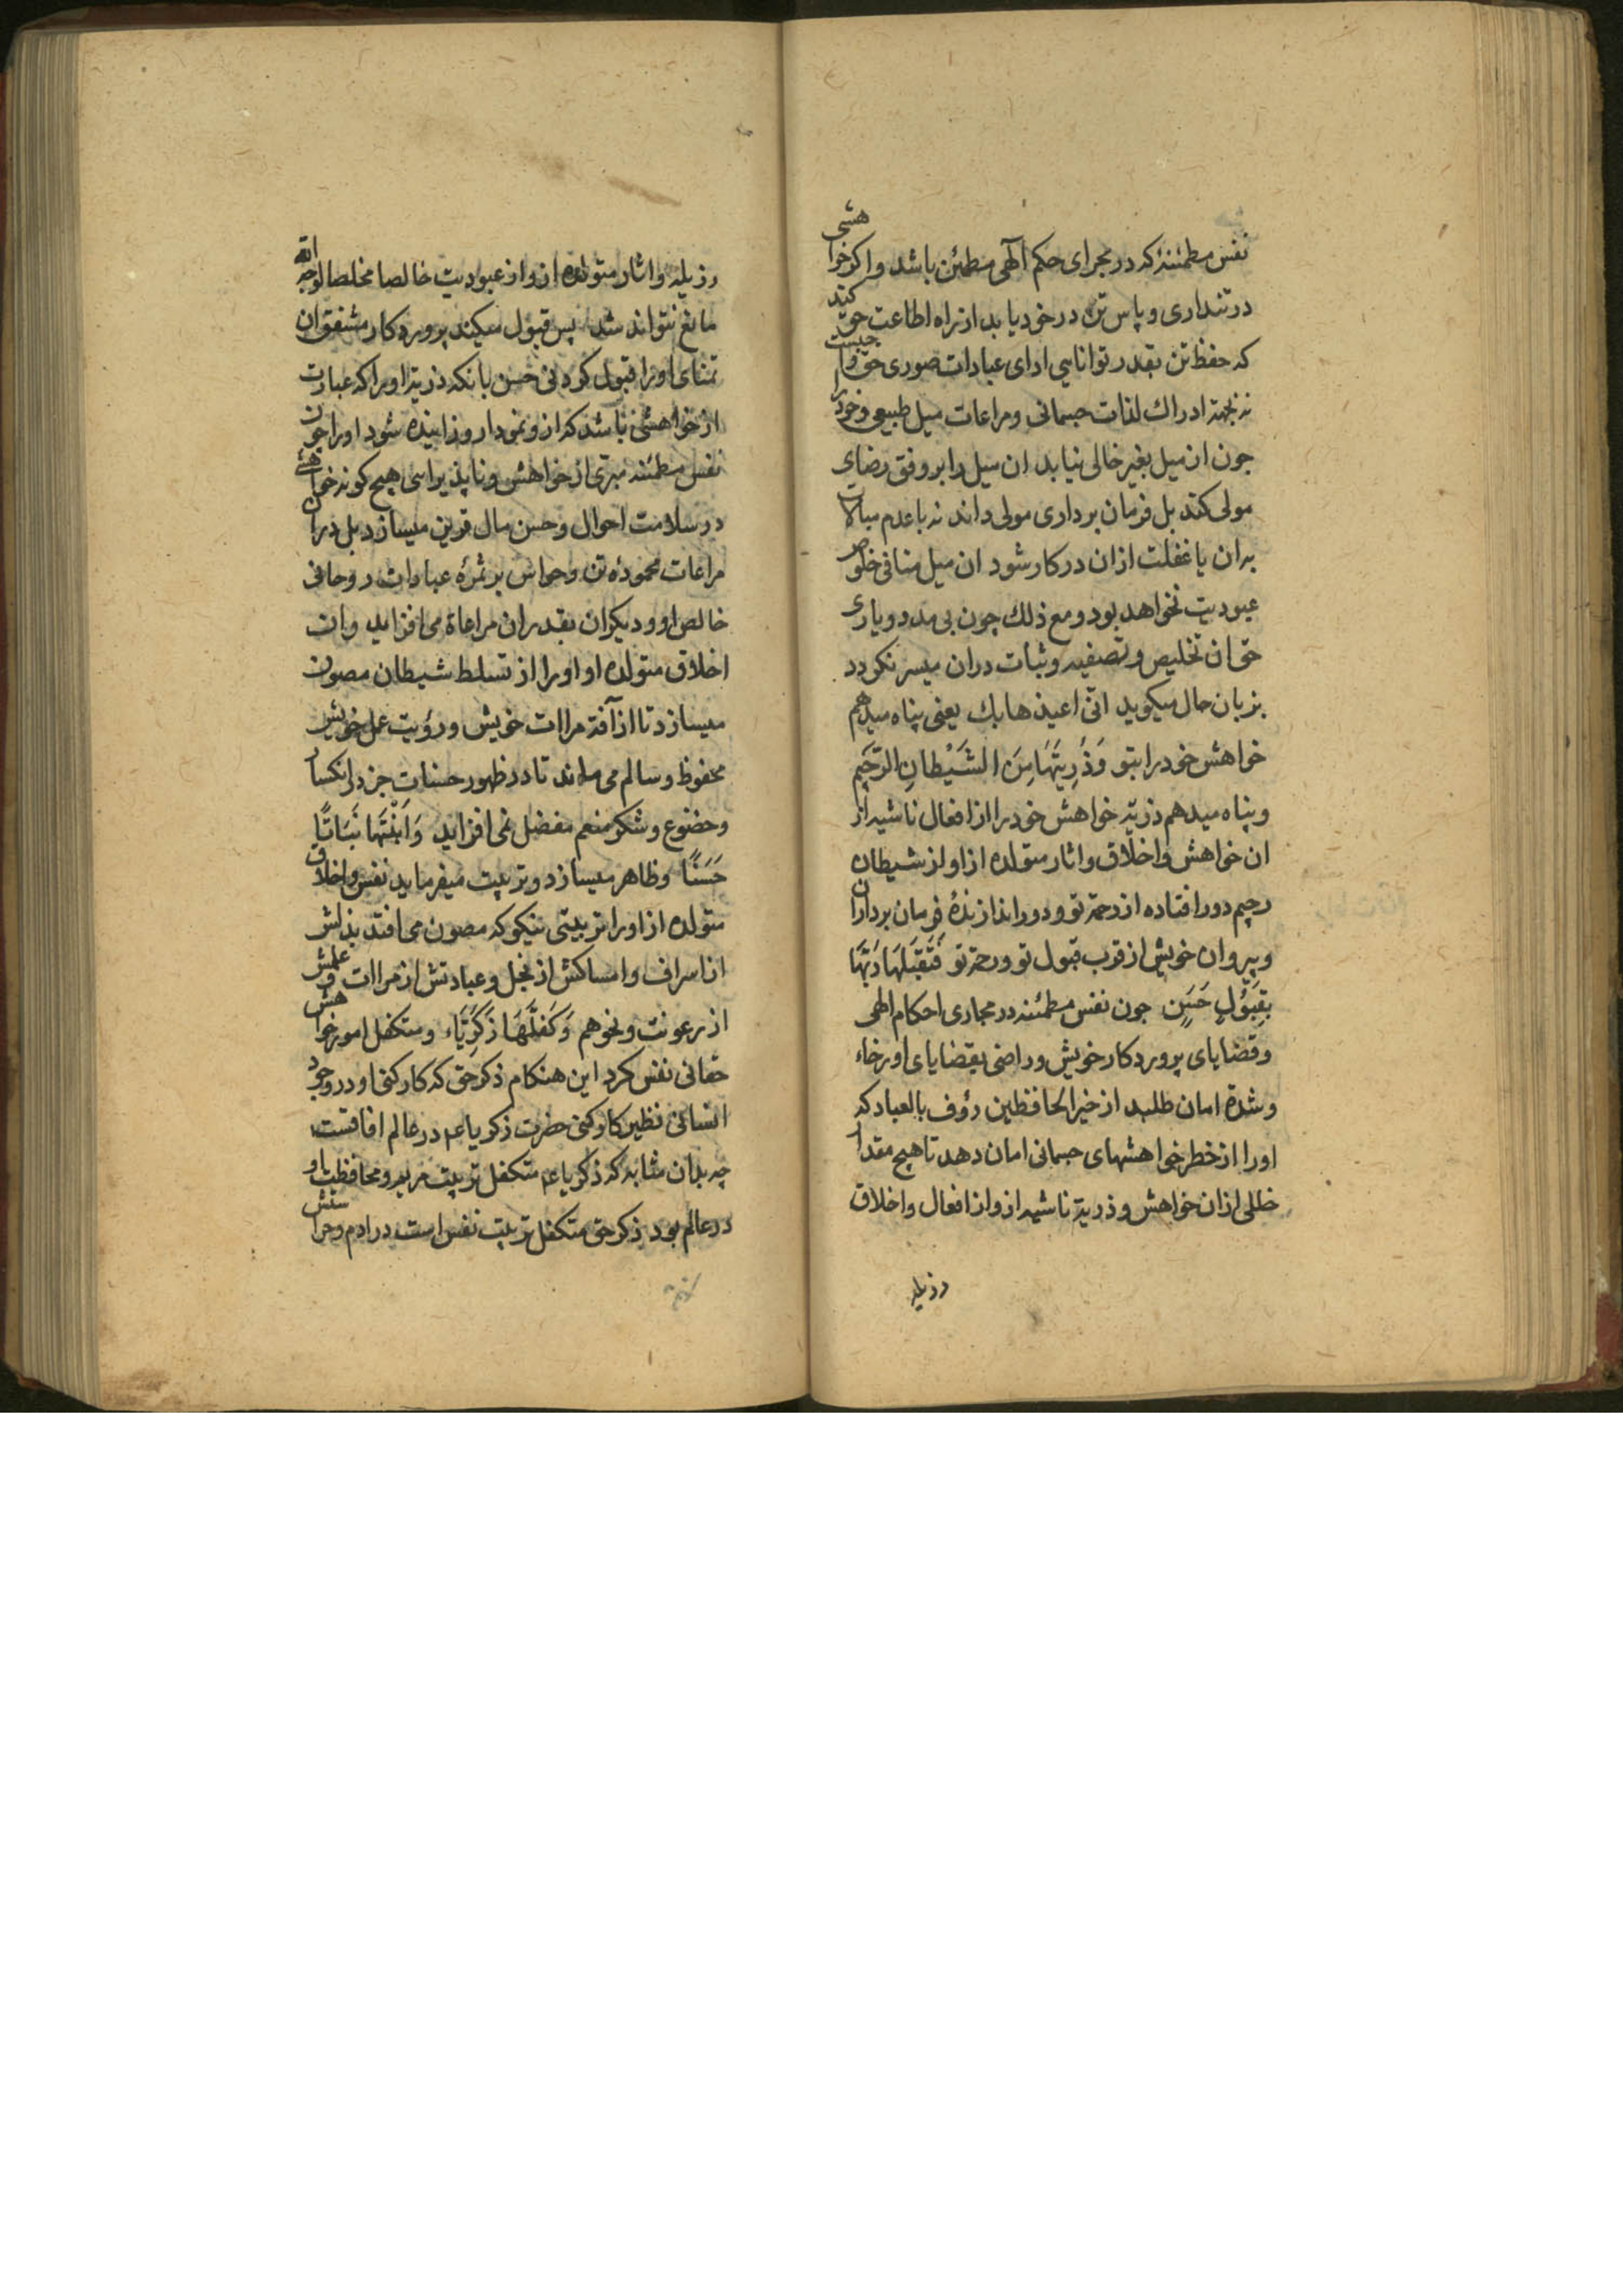 نفس مطمئنهٔ که در مجرای حکم آلهی مطمئن باشد و اکر خواهشی
در تنداری و پاس تن در خود یابد از راه اطاعت حق کند
که حفظ تن بقدر توانایی ادای عبادات صوری حق واجبست
نه بجهة ادراك لذات جسمانی و مراعات میل طبیعی و خود را
جون ان میل بغیر خالی نیابد ان میل را بر وفق رضای
مولی کند بل فرمان برداری مولی داند نه با عدم مبالات
بران یا غفلت ازان در کار شود ان میل منافی خلوص
عبودیت نخواهد بود و مع ذلك چون بی مدد و یاری
حق ان تخلیص و تصفیه و ثبات دران میسر نکردد
بزبان حال میکوید انی اعیذها بك یعنی پناه میدهم
خواهش خود را بتو وَذُرِيَّتَهَا مِنَ الشَّيْطَانِ الرَّجِيمِ
و پناه میدهم ذریهٔ خواهش خود را از افعال ناشیه از
ان خواهش و اخلاق و اثار متولده از او از شیطان
رجیم دور افتاده از رحمة تو و دور اندازندهٔ فرمان برداران
و پیروان خویش از قرب قبول تو و رحمة تو فَتَقَبَّلَهَا رَبُّهَا
بِقَبُولٍ حَسَنٍ جون نفس مطمئنه در مجاری احکام الهی
و قضایای پروردکار خویش و راضی بقضایای او رخاء
و شدة امان طلبد از خیر الحافظین رؤف بالعباد که
او را از خطر خواهشهای جسمانی امان دهد تا هیچ مقدار
خللی ازان خواهش و ذریة ناشیه ازو از افعال و اخلاق
رذیله
رذیله و اثار متولده ازو از عبودیت خالصا مخلصا لوجه الله
مانع نتواند شد پس قبول میکند پروردکار مشفق ان
تمنای او را قبول کردنی حسن بانکه ذریة او را که عبارت
از خواهشی باشد که ازو نمودار و زاییده شود او را جون
نفس مطمئنه مبری از خواهش و ناپذیرای هیچ کونه خواهشی
در سلامت احوال و حسن مال قرین میسازد بل دران
مراعات محمودهٔ تن و حواس بر ثمرهٔ عبادات روحانی
خالص او و دیکران بقدر ان مراعاة می افزاید وان
اخلاق متولده او او را از تسلط شیطان مصون
میسازد تا از آفة مراات خویش و رؤیت عمل خویش
محفوظ و سالم می ماند تا در ظهور حسنات جز در انکسار
و خضوع و شکر منعم مفضل نمی افزاید وَاَنْبَتَهَا نَبَاتًا
حَسَنًا و ظاهر میسازد و تربیت میفرماید نفس و اخلاق
متولده از او را تربیتی نیکو که مصون می افتد بذلش
از اسراف و امساکش از بخل و عبادتش از مراات و علمش
از رعونت و نحوهم وَكَفَّلَهَا زَكَرِيَّاء و متکفل امور خواهش
حقانی نفس کرد این هنکام ذکر حق که کارکنی او در وجود
انسانی نظیر کارکنی حضرت ذکریا عم در عالم افاقست
چه بدان مثابه که ذکریا عم متکفل تربیت مریم و محافظت او
در عالم بود ذکر حق متکفل تربیت نفس است در ادم و حراستش